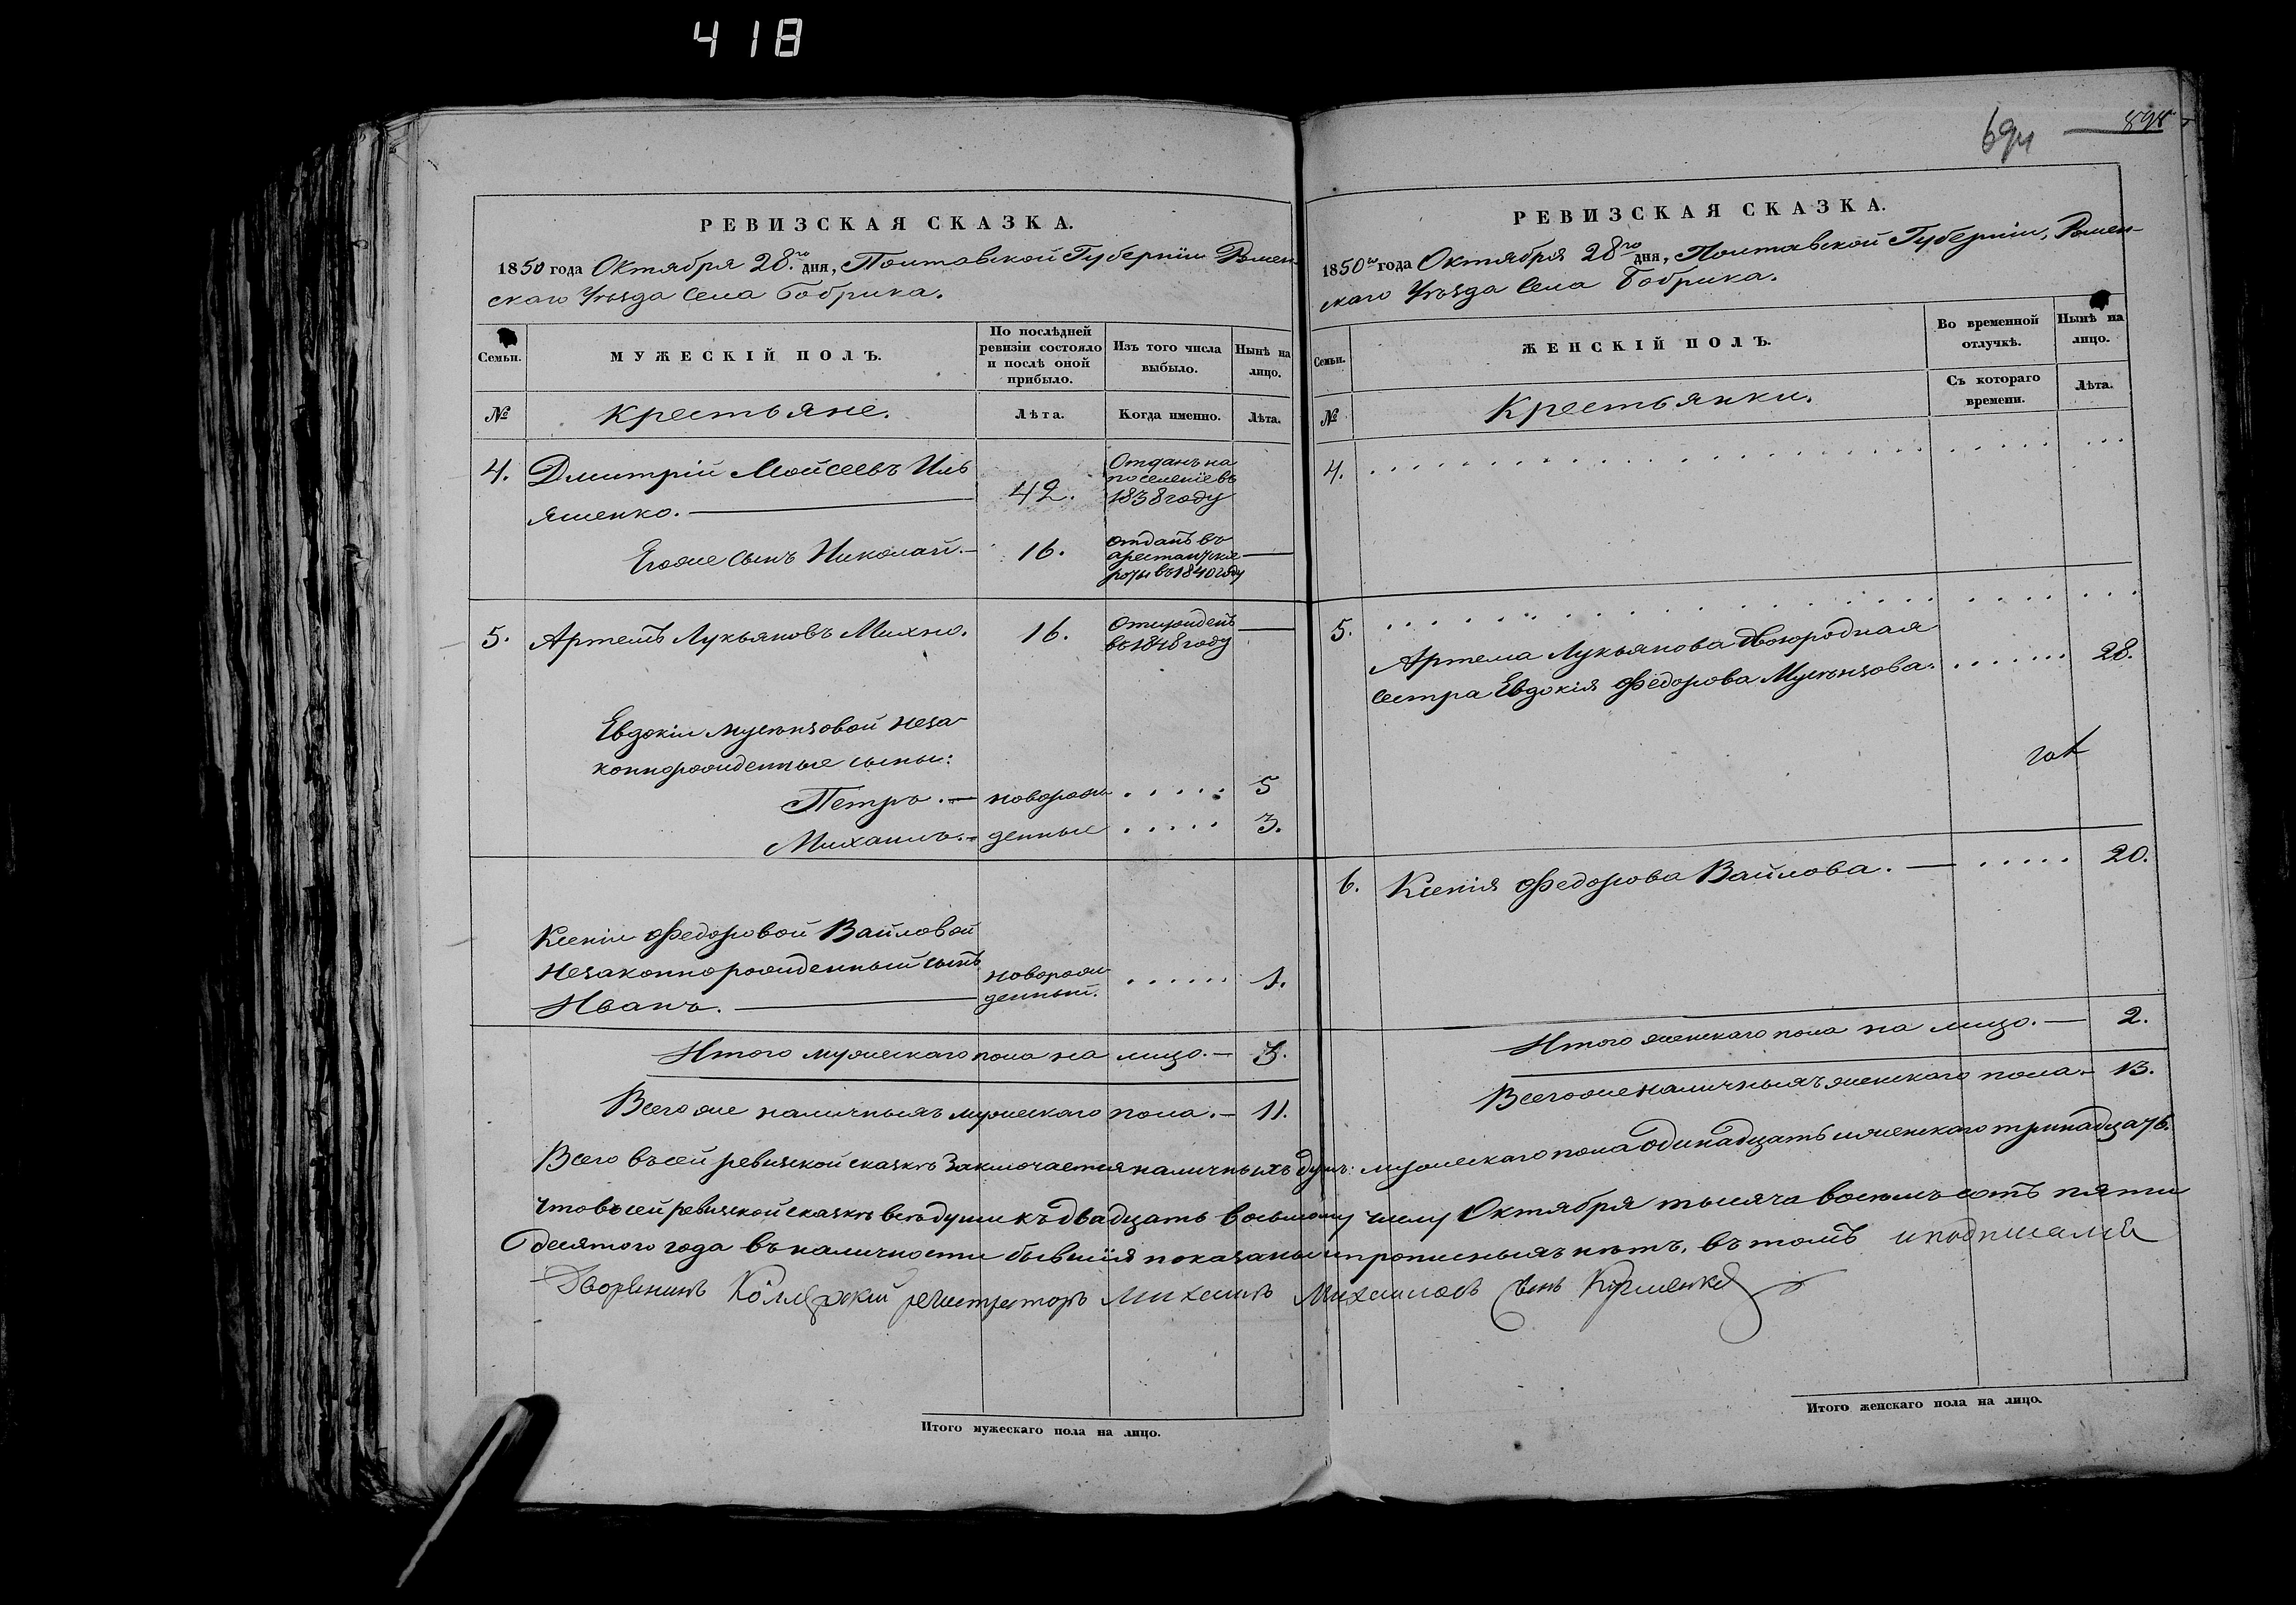 418
694 898
РЕВИЗСКАЯ СКАЗКА.
1850 года Октября 28го дня, Полтавской Губерніи Ромен-
скаго Уѣзда Села Бобрика.
Семьи.
МУЖЕСКІЙ ПОЛЪ.
По послѣдней
ревизіи состояло
и послѣ оной
прибыло.
Изъ того числа
выбыло.
Нынѣ на
лицо.
№ Крестьяне. Лѣта. Когда именно. Лѣта.
4. Дмитрій Мойсеевъ Иль
яшенко. 42. Отданъ на
поселеніе въ
1838 году
Егоже сынъ Николай. 16. отданъ въ
арестанскіе
роты въ 1840 году
5. Артемъ Лукьяновъ Михно. 16. Отпущенъ
въ 1848 году
Евдокіи Мусѣнзовой неза-
коннорожденные сыны:
Петръ. — новорож ..... 5
Михаилъ. — денные ..... 3.
Ксеніи Федоровой Вайловой
Незаконнорожденный сынъ
Иванъ. новорож
денный. ...... 1.
Итого мужескаго пола на лицо. — 3.
Всего же наличныхъ мужескаго пола. — 11.
РЕВИЗСКАЯ СКАЗКА.
1850го года Октября 28го дня, Полтавской Губерніи, Ромен-
скаго Уѣзда Села Бобрика.
Семьи.
ЖЕНСКІЙ ПОЛЪ.
Во временной
отлучкѣ.
Нынѣ на
лицо.
№ Крестьянки. Съ котораго
времени. Лѣта.
4. ......
5. ......
Артема Лукьянова двоюродная
сестра Евдокія Федорова Мусѣнзова. ....... 28.
6. Ксенія Федорова Вайлова. — ..... 20.
Итого женскаго пола на лицо. — 2.
Всего же наличныхъ женскаго пола. — 13.
Всего въ сей ревизской сказкѣ заключается наличныхъ душъ: мужескаго пола одинадцать и женскаго тринадцать.
Что въ сей ревизской сказкѣ всѣ души къ двадцать восьмому числу Октября тысяча восемь сотъ пяти
десятого года въ наличности бывшія показаны и прописныхъ нѣтъ, въ томъ и подписался
Дворянинъ Коллежскій регистраторъ Михаилъ Михаиловъ сынъ
Итого мужескаго пола на лицо.
Итого женскаго пола на лицо.